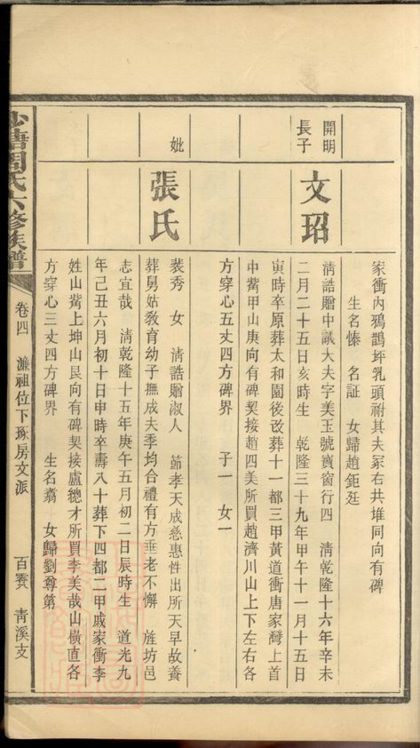 家衝內鴉鵲坪乳頭祔其夫冢右共堆同向有碑
生名愫 名証 女歸趙鉅廷
開明
長子
文玿
清誥贈中議大夫字美玉號寶窗行四 清乾隆十六年辛未
二月二十五日亥時生 乾隆三十九年甲午十一月十五日
寅時卒原葬太和園後改葬十一都三甲黃道衝唐家灣上首
中嘴甲山庚向有碑契接趙四美所買趙濟川山上下左右各
方穿心五丈四方碑界 子一 女一
妣
張氏
裴秀 女 清誥贈淑人 節孝天成慈惠性出所天早故養
葬舅姑敎育幼子撫成夫季均合禮有方垂老不懈 旌坊邑
志宜哉 清乾隆十五年庚午五月初二日辰時生 道光九
年己丑六月初十日申時卒壽八十葬下四都二甲戚家衝李
姓山嘴上坤山艮向有碑契接盧德才所買李美哉山橫直各
方穿心三丈四方碑界 生名翥 女歸劉尊第
沙塘周氏六修族譜
卷四 濂祖位下琢房文派 百賚 靑溪支